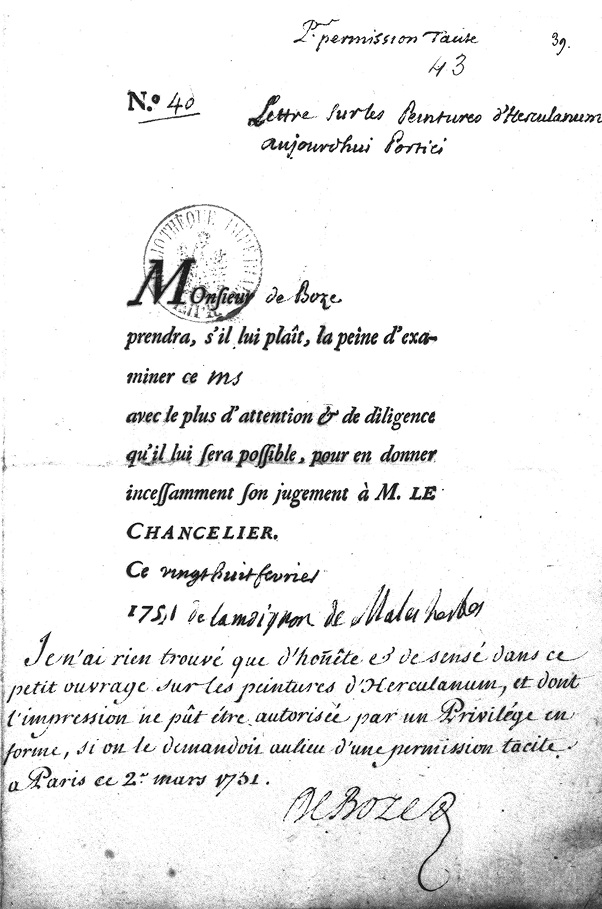 Pr. permission Tacite 39.
43
N.º 40
Lettre sur les Peintures d'Herculanum
aujourdhui Portici
BIBLIOTHÈQUE IMPÉRIALE
Monsieur de Boze
prendra, s'il lui plaît, la peine d'exa-
miner ce ms
avec le plus d'attention & de diligence
qu'il lui ſera poſſible, pour en donner
inceſſamment ſon jugement à M. LE
CHANCELIER.
Ce vingt huit fevrier
1751 de lamoignon de Malesherbes
Je n'ai rien trouvé que d'hoñête et de sensé dans ce
petit ouvrage sur les peintures d'Herculanum, et dont
l'impression ne pût être autorisée par un Privilége en
forme, si on le demandoit aulieu d'une permission tacite.
a Paris ce 2.e mars 1751.
DE BOZE